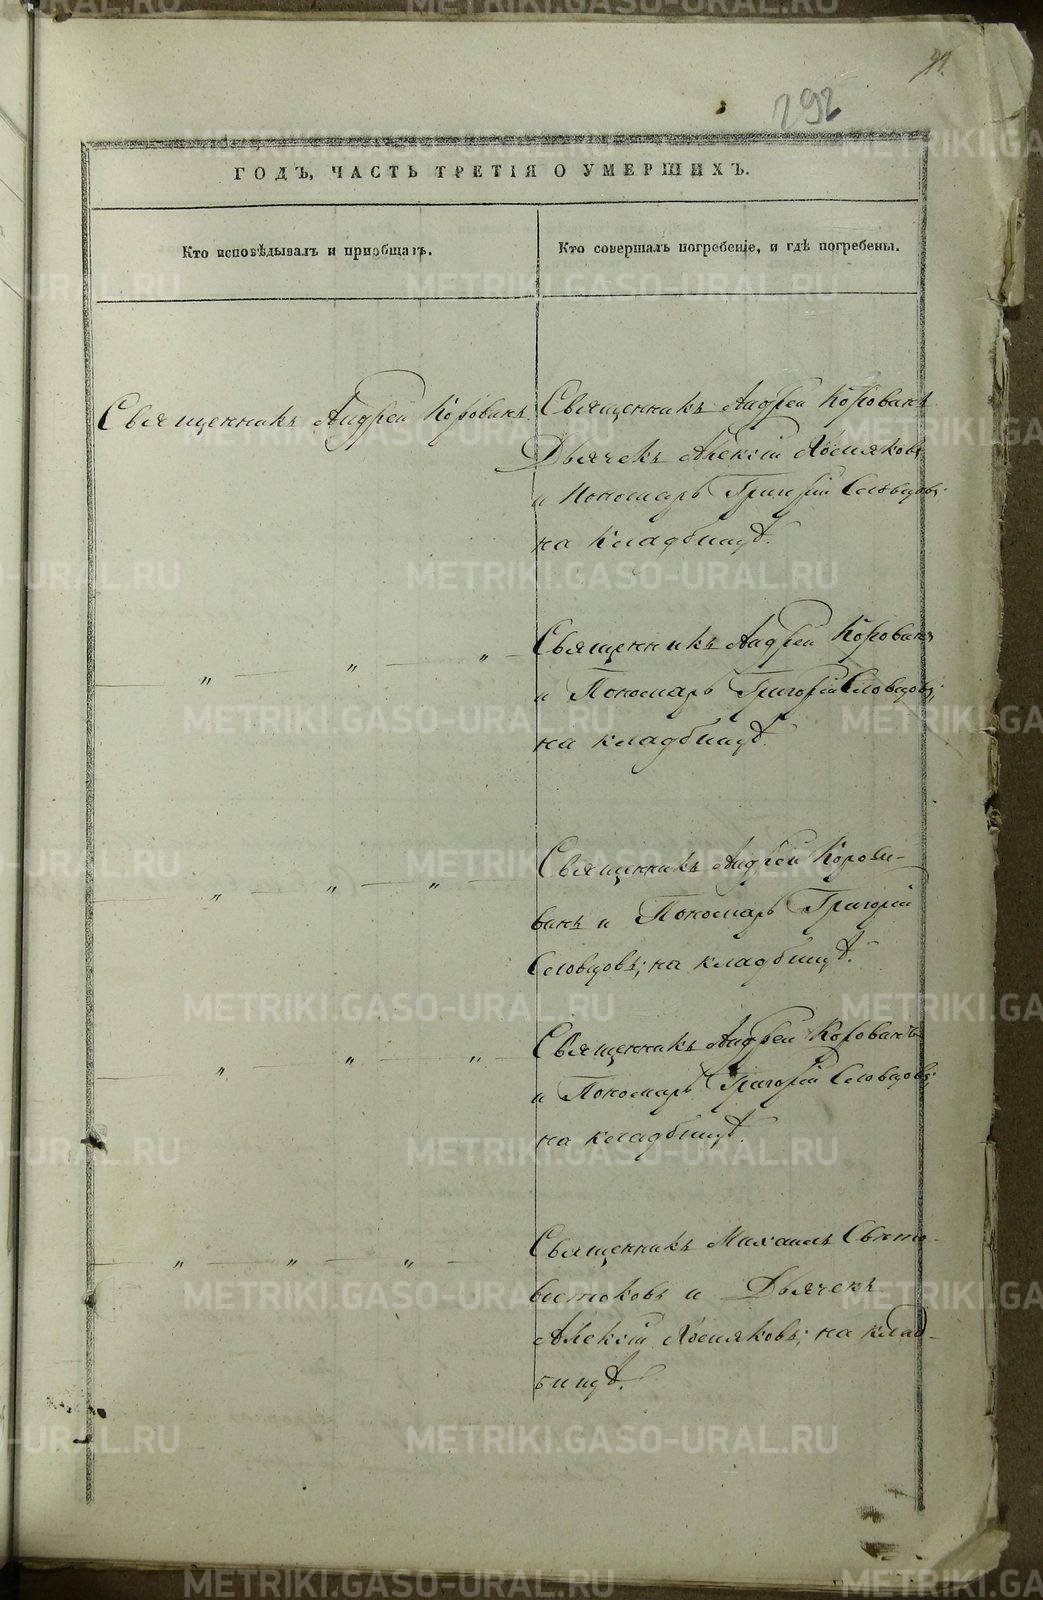 292
ГОДЪ, ЧАСТЬ ТРЕТІЯ О УМЕРШИХЪ.
Кто исповѣдывалъ и пріобщалъ.
Кто совершалъ погребеніе, и гдѣ погребены.
Священникъ Андрей Корованъ
Священникъ Андрей Корованъ
Дьячекъ Алексій
и Пономарь Григорій Словцовъ;
на кладбищѣ.
„ „ „
Священникъ Андрей Корованъ
и Пономарь Григорій Словцовъ;
на кладбищѣ.
„ „ „
Священникъ Андрей
и Пономарь Григорій
Словцовъ; на кладбищѣ.
„ „ „
Священникъ Андрей Корованъ
и Пономарь Григорій Словцовъ;
на кладбищѣ.
„ „ „
Священникъ Михаилъ
и Дьячекъ
Алексій на клад-
бищѣ.
METRIKI.GASO-URAL.RU